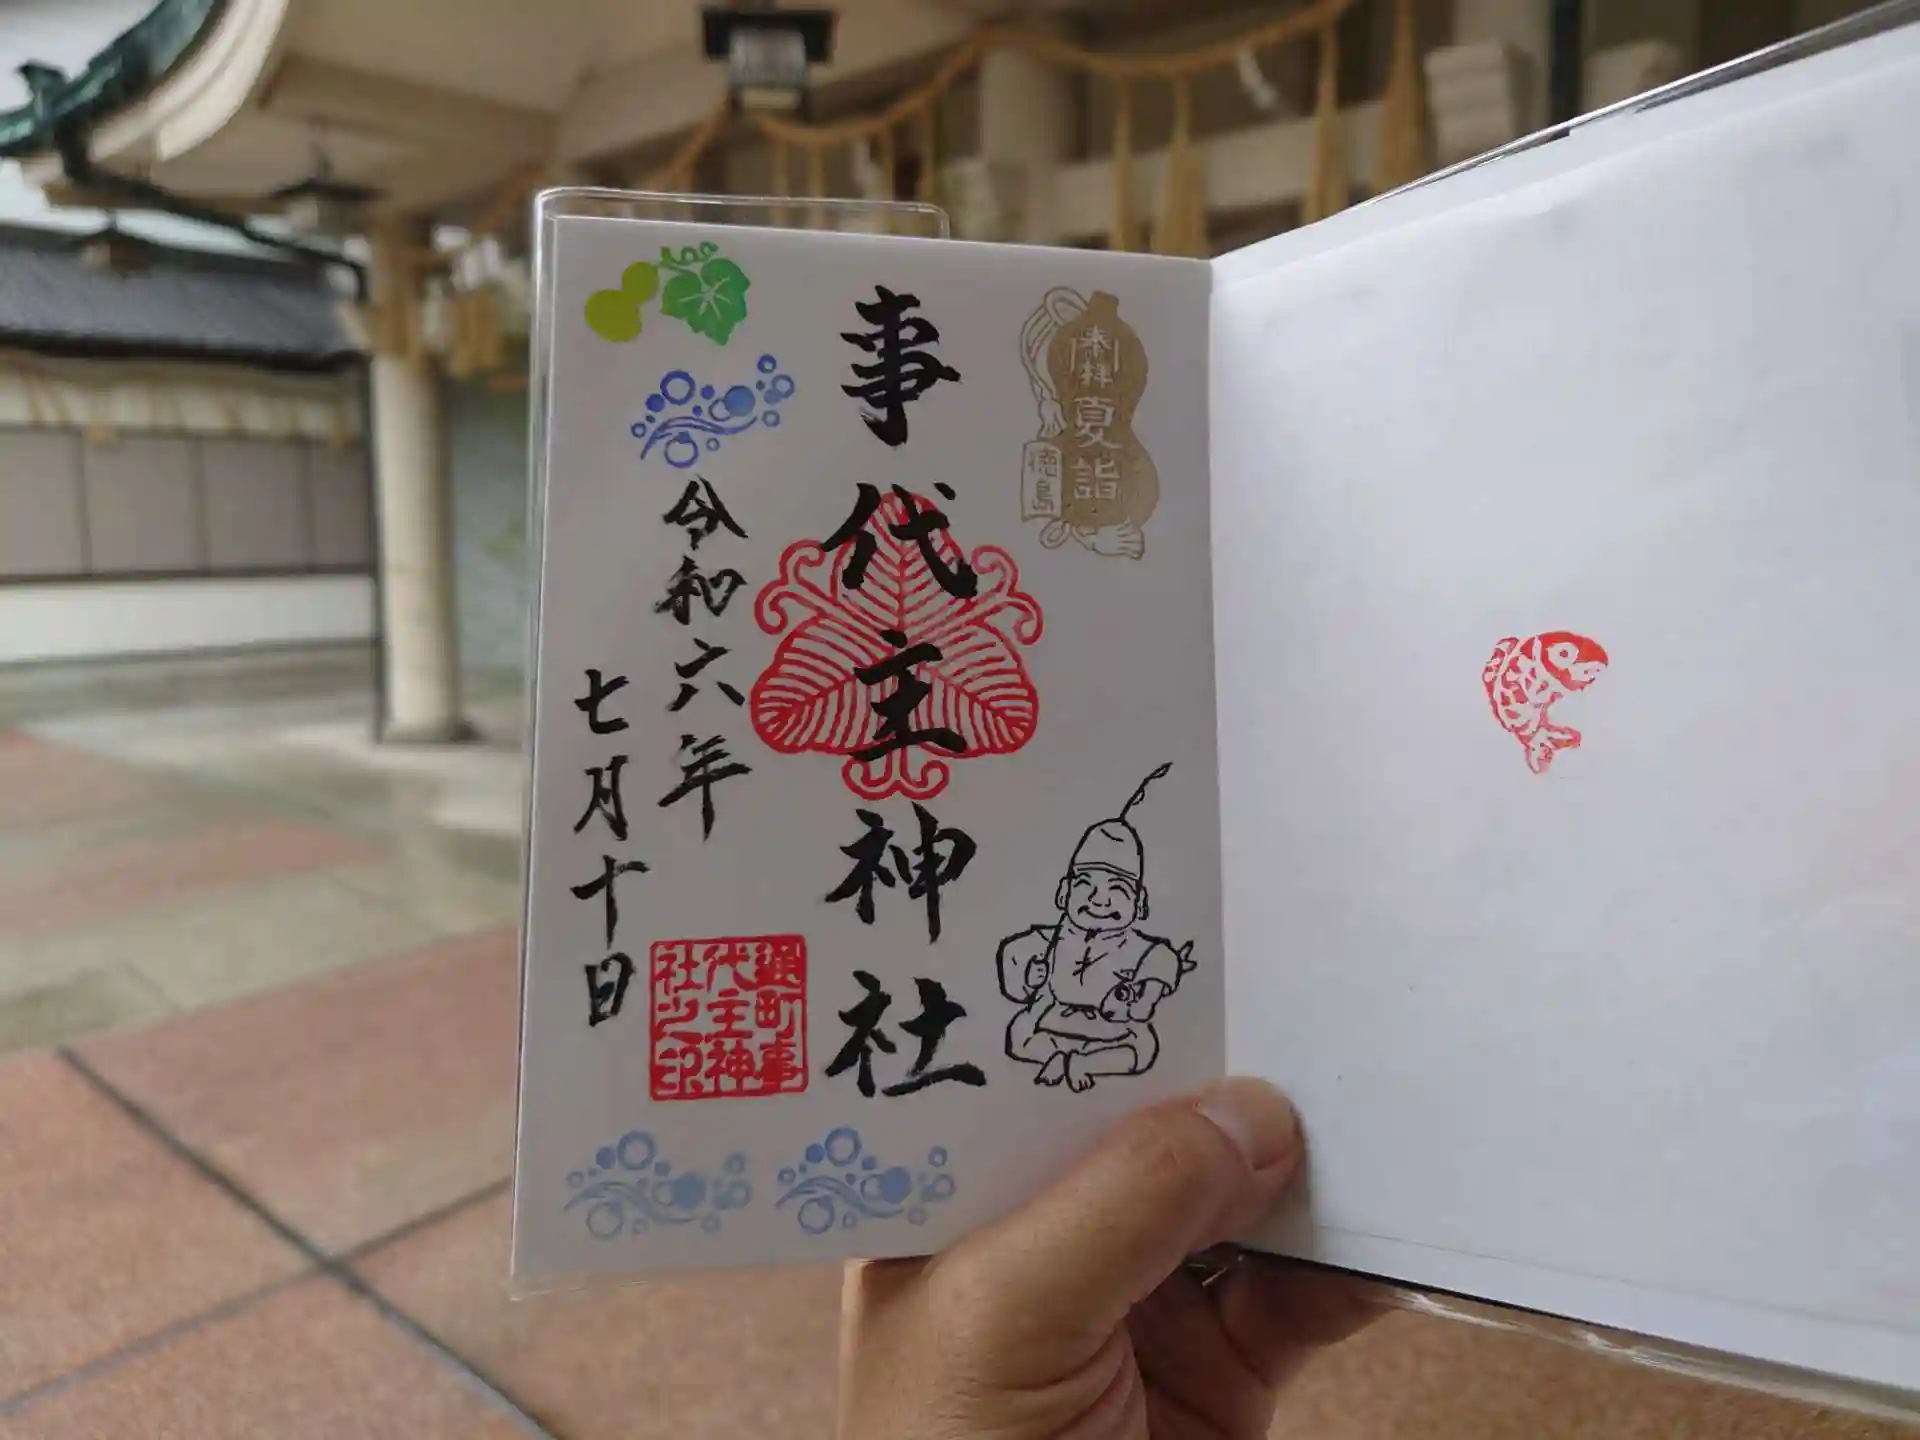 奉拝
夏詣
徳島
事代主神社
令和六年
七月十日
通町事
代主神
社之印